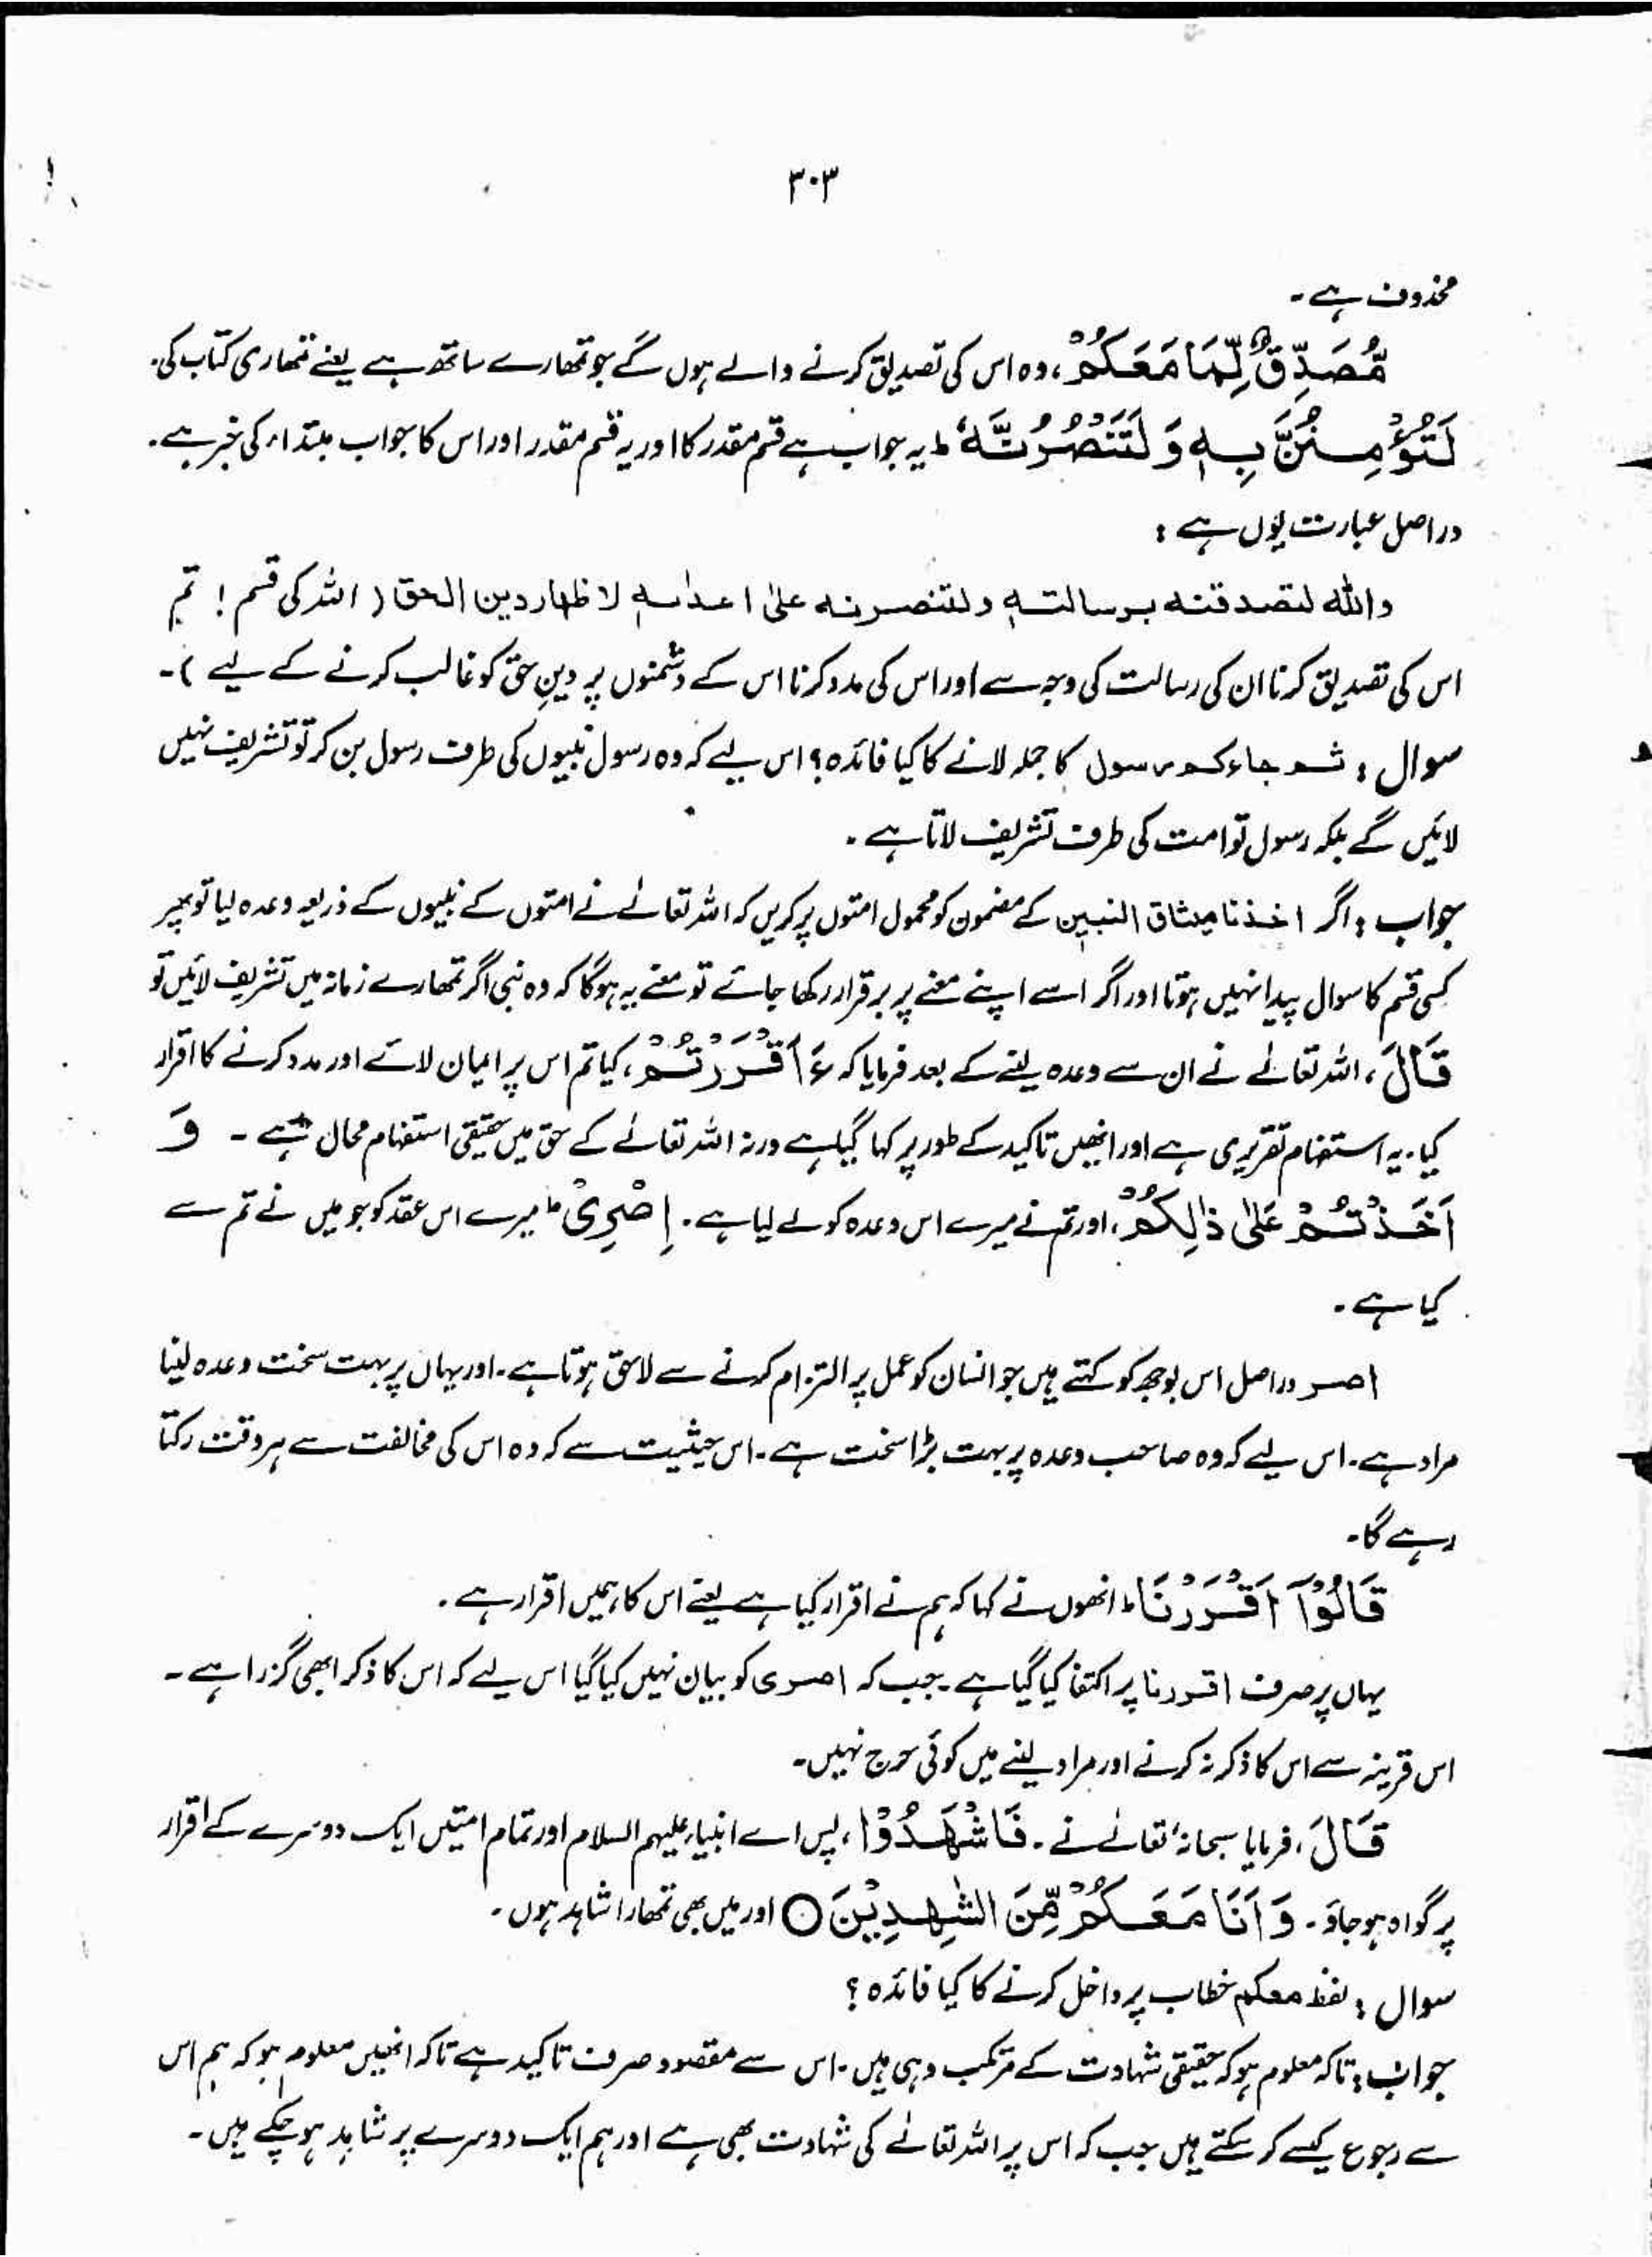 ۳۰۳
محذوف ہے۔
مُّصَدِّقٌ لِّمَا مَعَكُمْ، وہ اس کی تصدیق کرنے والے ہوں گے جو تمھارے ساتھ ہے یعنے تمھاری کتاب کی۔
لَتُؤْمِنُنَّ بِهٖ وَ لَتَنْصُرُنَّهٗ ؕ یہ جواب ہے قسم مقدر کا اور یہ قسم مقدر اور اس کا جواب مبتداء کی خبر ہے۔
در اصل عبارت یوں ہے :
واللہ لتصدقنه برسالتهٖ ولتنصرنه علیٰ اعدائهٖ لاظهار دین الحق ( اللہ کی قسم ! تم
اس کی تصدیق کرنا ان کی رسالت کی وجہ سے اور اس کی مدد کرنا اس کے دشمنوں پر دینِ حق کو غالب کرنے کے لیے )۔
سوال : ثم جاءکم رسول کا جملہ لانے کا کیا فائدہ ؟ اس لیے کہ وہ رسول نبیوں کی طرف رسول بن کر تو تشریف نہیں
لائیں گے بلکہ رسول تو امت کی طرف تشریف لاتا ہے ۔
جواب : اگر اخذنا میثاق النبین کے مضمون کو محمول امتوں پر کریں کہ اللہ تعالےٰ نے امتوں کے نبیوں کے ذریعہ وعدہ لیا تو پھر
کسی قسم کا سوال پیدا نہیں ہوتا اور اگر اسے اپنے معنے پر برقرار رکھا جائے تو معنے یہ ہوگا کہ وہ نبی اگر تمھارے زمانہ میں تشریف لائیں تو
قَالَ، اللہ تعالےٰ نے ان سے وعدہ لینے کے بعد فرمایا کہ ءَاَقْرَرْتُمْ، کیا تم اس پر ایمان لائے اور مدد کرنے کا اقرار
کیا۔ یہ استفہام تقریری ہے اور انھیں تاکید کے طور پر کہا گیا ہے ورنہ اللہ تعالےٰ کے حق میں حقیقی استفہام محال ہے ۔ وَ
اَخَذْتُمْ عَلیٰ ذٰلِكُمْ، اور تم نے میرے اس وعدہ کو لے لیا ہے ۔ اِصْرِیْ ؕ میرے اس عقد کو جو میں نے تم سے
کیا ہے ۔
اصر دراصل اس بوجھ کو کہتے ہیں جو انسان کو عمل پر التزام کرنے سے لاحق ہوتا ہے ۔ اور یہاں پر بہت سخت وعدہ لینا
مراد ہے ۔ اس لیے کہ وہ صاحب وعدہ پر بہت بڑا سخت ہے ۔ اس حیثیت سے کہ وہ اس کی مخالفت سے ہر وقت رکتا
رہے گا ۔
قَالُوْٓا اَقْرَرْنَا ؕ انھوں نے کہا کہ ہم نے اقرار کیا ہے یعنے اس کا ہمیں اقرار ہے ۔
یہاں پر صرف اقررنا پر اکتفا کیا گیا ہے ۔ جب کہ اصری کو بیان نہیں کیا گیا اس لیے کہ اس کا ذکر ابھی گزرا ہے ۔
اس قرینہ سے اس کا ذکر نہ کرنے اور مراد لینے میں کوئی حرج نہیں ۔
قَالَ، فرمایا سبحانہٗ تعالےٰ نے ۔ فَاشْهَدُوْا، پس اے انبیاء علیہم السلام اور تمام امتیں ایک دوسرے کے اقرار
پر گواہ ہو جاؤ ۔ وَ اَنَا مَعَكُمْ مِّنَ الشّٰهِدِیْنَ ○ اور میں بھی تمھارا شاہد ہوں ۔
سوال : لفظ معکم خطاب پر داخل کرنے کا کیا فائدہ ؟
جواب : تاکہ معلوم ہو کہ حقیقی شہادت کے مرتکب وہی ہیں ۔ اس سے مقصود صرف تاکید ہے تاکہ انھیں معلوم ہو کہ ہم اس
سے رجوع کیسے کر سکتے ہیں جب کہ اس پر اللہ تعالےٰ کی شہادت بھی ہے اور ہم ایک دوسرے پر شاہد ہو چکے ہیں ۔